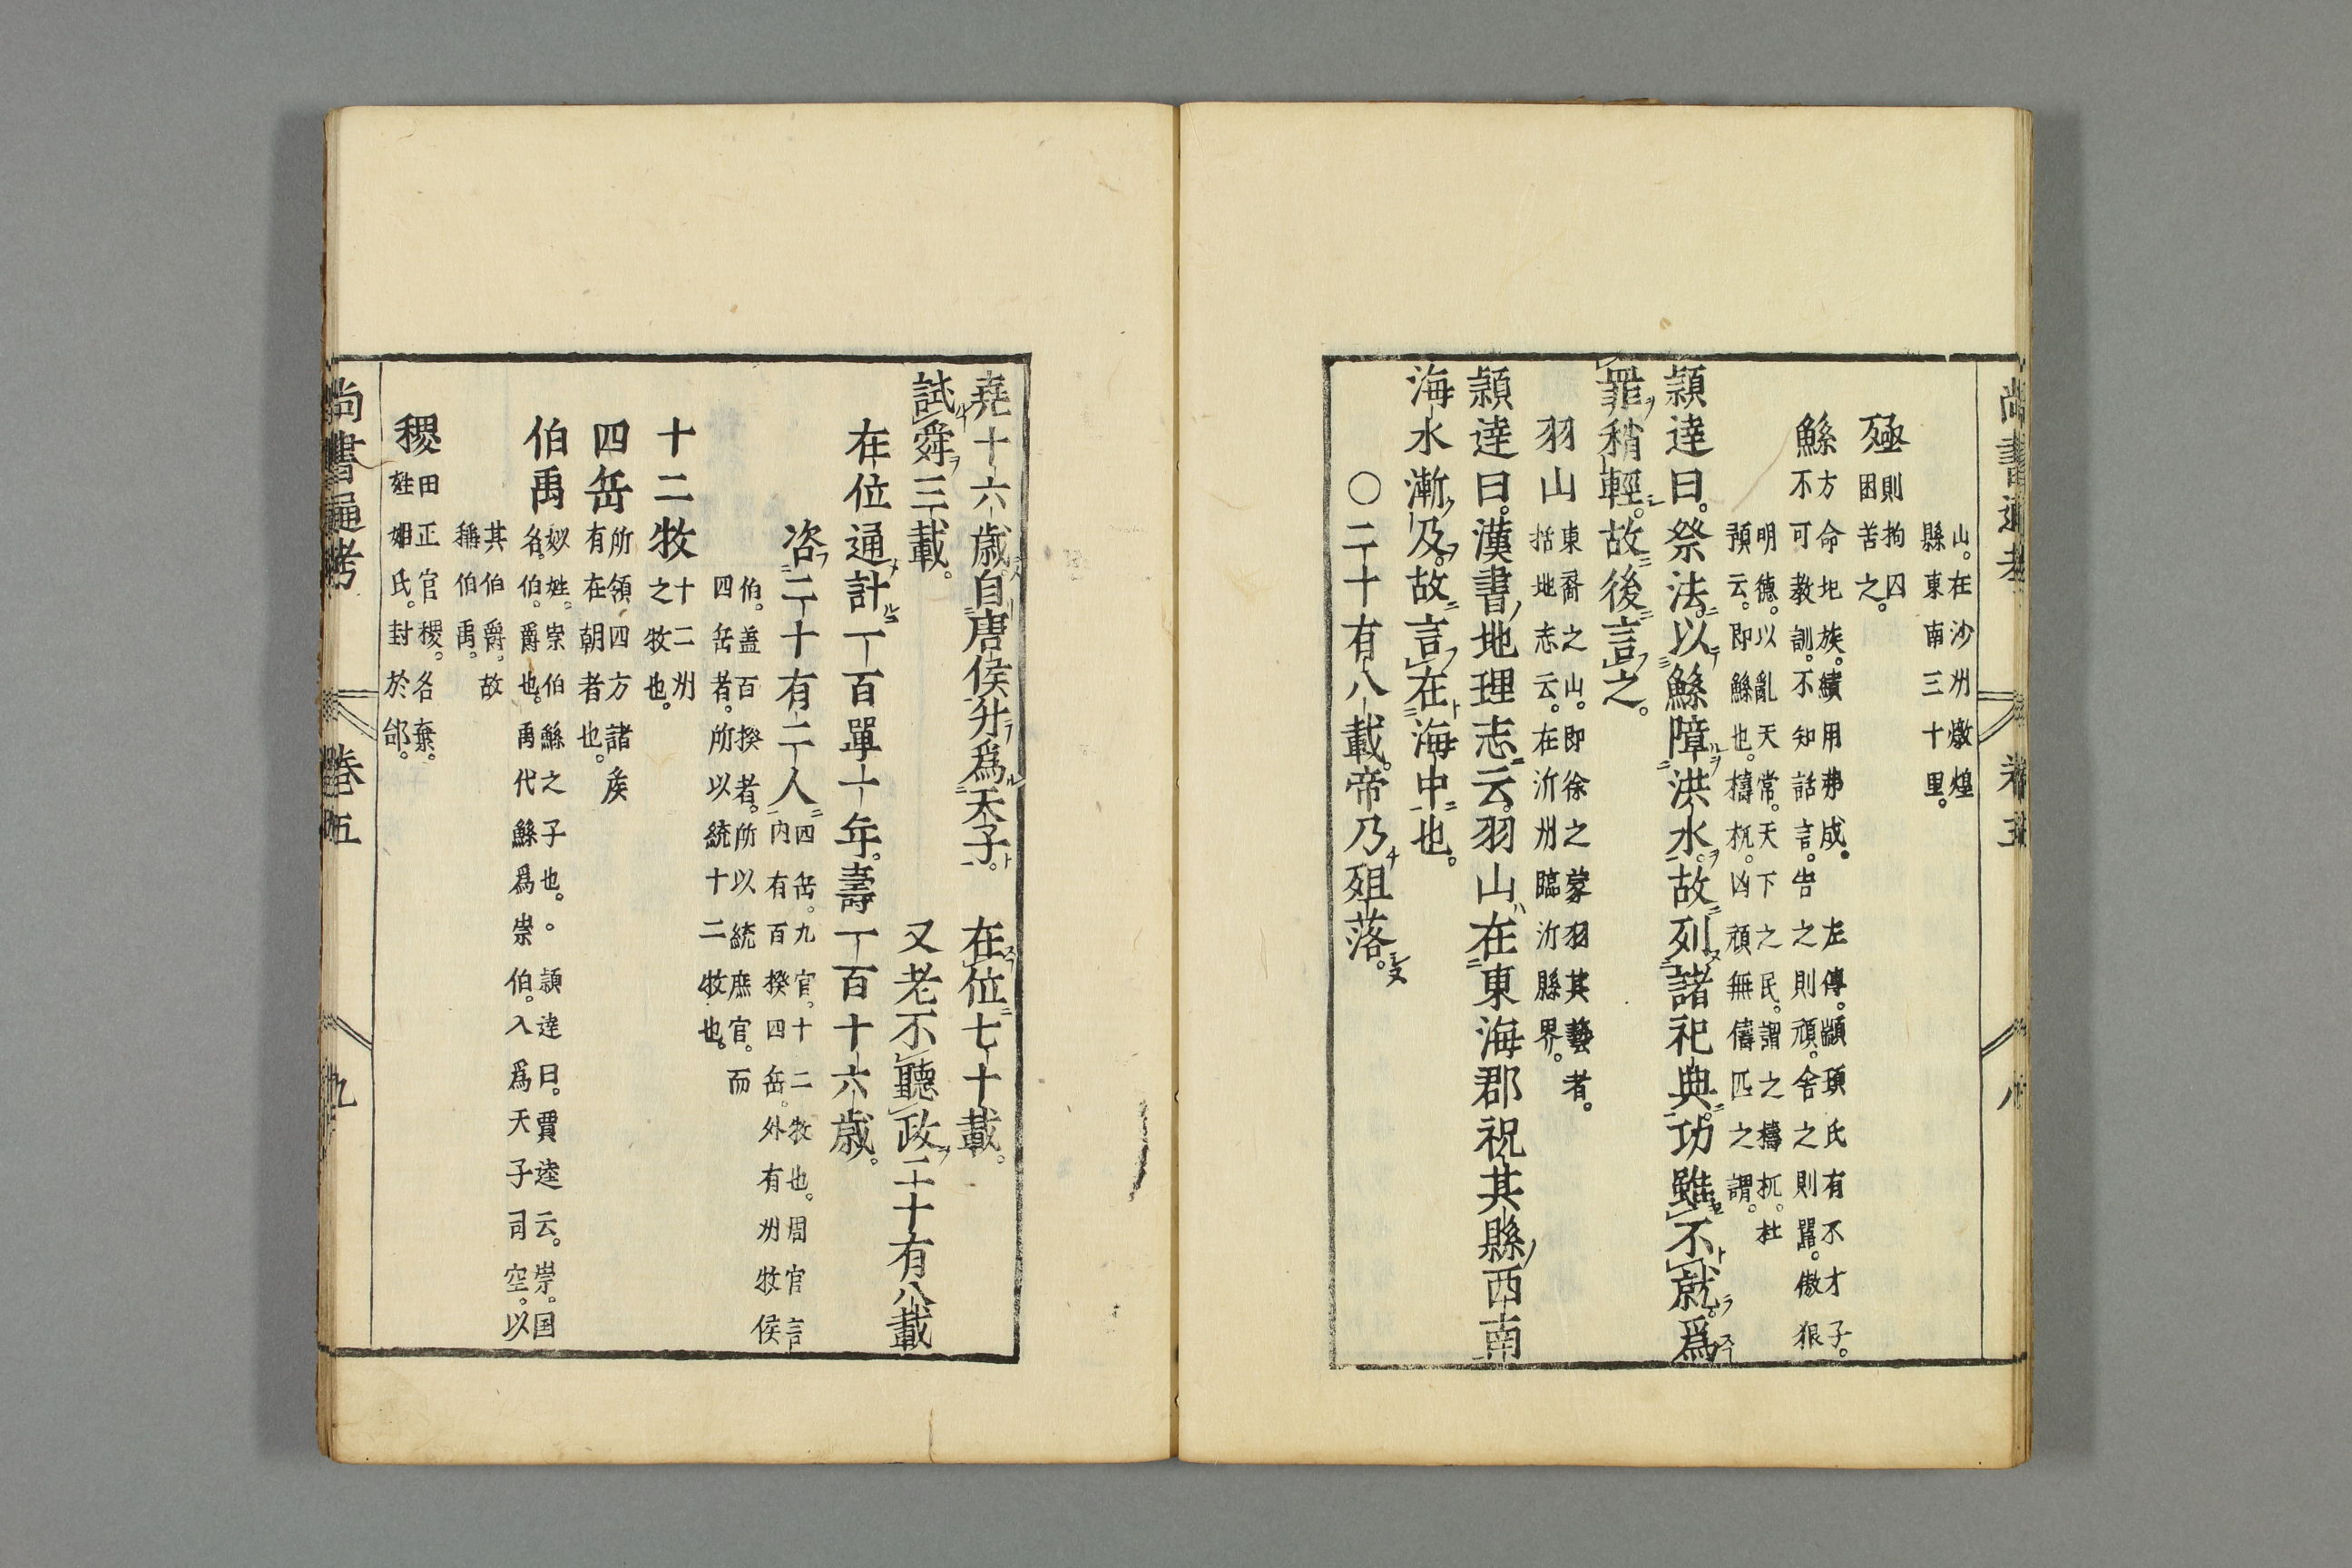 尚書通考 卷五 八
山。在沙州燉煌
縣東南三十里。
殛 則拘囚
困苦之。
鯀 方命圯族。績用弗成。左傳。顓頊氏有不才子。
不可教訓。不知話言。告之則頑。舍之則嚚。傲狠
明德。以亂天常。天下之民。謂之檮杌。杜
預云。即鯀也。檮杌。凶頑無儔匹之謂。
頴逹曰。祭法。以鯀障洪水。故列諸祀典。功雖不就。爲
罪稍輕。故後言之。
羽山 東裔之山。即徐之蒙羽其藝者。
括地志云。在沂州臨沂縣界。
頴逹曰。漢書地理志云。羽山在東海郡祝其縣西南
海水漸及。故言在海中也。
〇二十有八載。帝乃殂落。
堯十六歲。自唐侯升爲天子。 在位七十載。
試舜三載。 又老不聽政二十有八載
在位通計一百單十年。壽一百十六歲。
咨二十有二人 四岳。九官。十二牧也。周官言
内有百揆四岳。外有州牧侯
伯。盖百揆者。所以統庶官。而
四岳者。所以統十二牧也。
十二牧 十二州
之牧也。
四岳 所領四方諸矦
有在朝者也。
伯禹 姒姓。崇伯鯀之子也。。頴逹曰。賈逵云。崇。国
名。伯。爵也。禹代鯀爲崇伯。入爲天子司空。以
其伯爵。故
稱伯禹。
稷 田正官稷。名棄。
姓姬氏。封於邰。
尚書通考 卷五 九